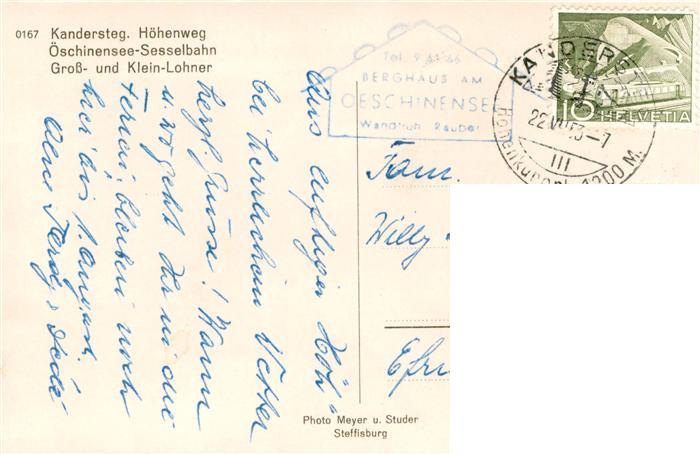 0167 Kandersteg. Höhenweg
Öschinensee-Sesselbahn
Groß- und Klein-Lohner
Tel. 9 61 66
BERGHAUS AM
OESCHINENSEE
Wandfluh
KANDERST
22 VII 53-7
III
Höhenkurort 1200 M.
10 HELVETIA
Aus luftiger Höh'
bei herrlichem Wetter
herzl. Grüsse! Wann
u. wo geht Ihr in die
Ferien, bleiben noch
hier bis 1. August.
Ferdy
Fam.
Willy
Photo Meyer u. Studer
Steffisburg